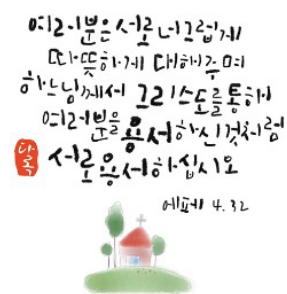 여러분은 서로 너그럽게
따뜻하게 대해주며
하느님께서 그리스도를 통해
여러분을 용서하신것처럼
서로 용서하십시오
다록
에페 4.32